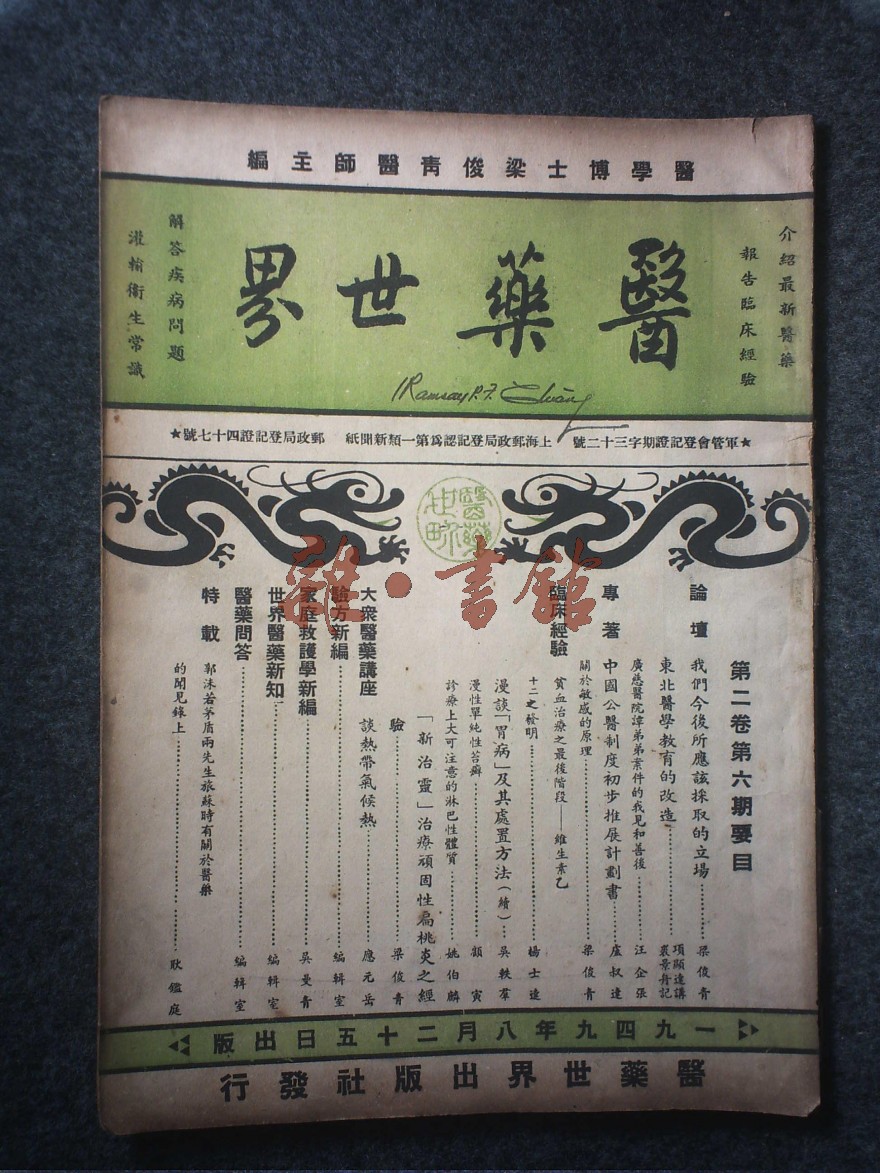 醫學博士梁俊青醫師主編
介紹最新醫藥
報告臨床經驗
醫藥世界
解答疾病問題
灌輸衞生常識
Ramsay P.F.
★軍管會登記證期字三十二號 上海郵政局登記認爲第一類新聞紙 郵政局登記證四十七號★
醫藥世界
雜·書館
第二卷第六期要目
論壇 我們今後所應該採取的立場 梁俊青
東北醫學教育的改造 項顯達講 裴景舟記
廣慈醫院譚弟弟案件的我見和善後 汪企張
專著 中國公醫制度初步推展計劃書 盧叔達
關於敏感的原理 梁俊青
臨床經驗 貧血治療之最後階段——維生素乙
十二之發明 楊士達
漫談「胃病」及其處置方法(續) 吳軼羣
慢性單純性苔癬 顧寅
診療上大可注意的淋巴性體質 姚伯麟
「新治靈」治療頑固性扁桃炎之經
驗 梁俊青
大衆醫藥講座 談熱帶氣候熱 應元岳
驗方新編 編輯室
家庭救護學新編 吳曼青
世界醫藥新知 編輯室
醫藥問答 編輯室
特載 郭沫若茅盾兩先生旅蘇時有關於醫藥
的聞見錄上 耿鑑庭
一九四九年八月二十五日出版
醫藥世界出版社發行